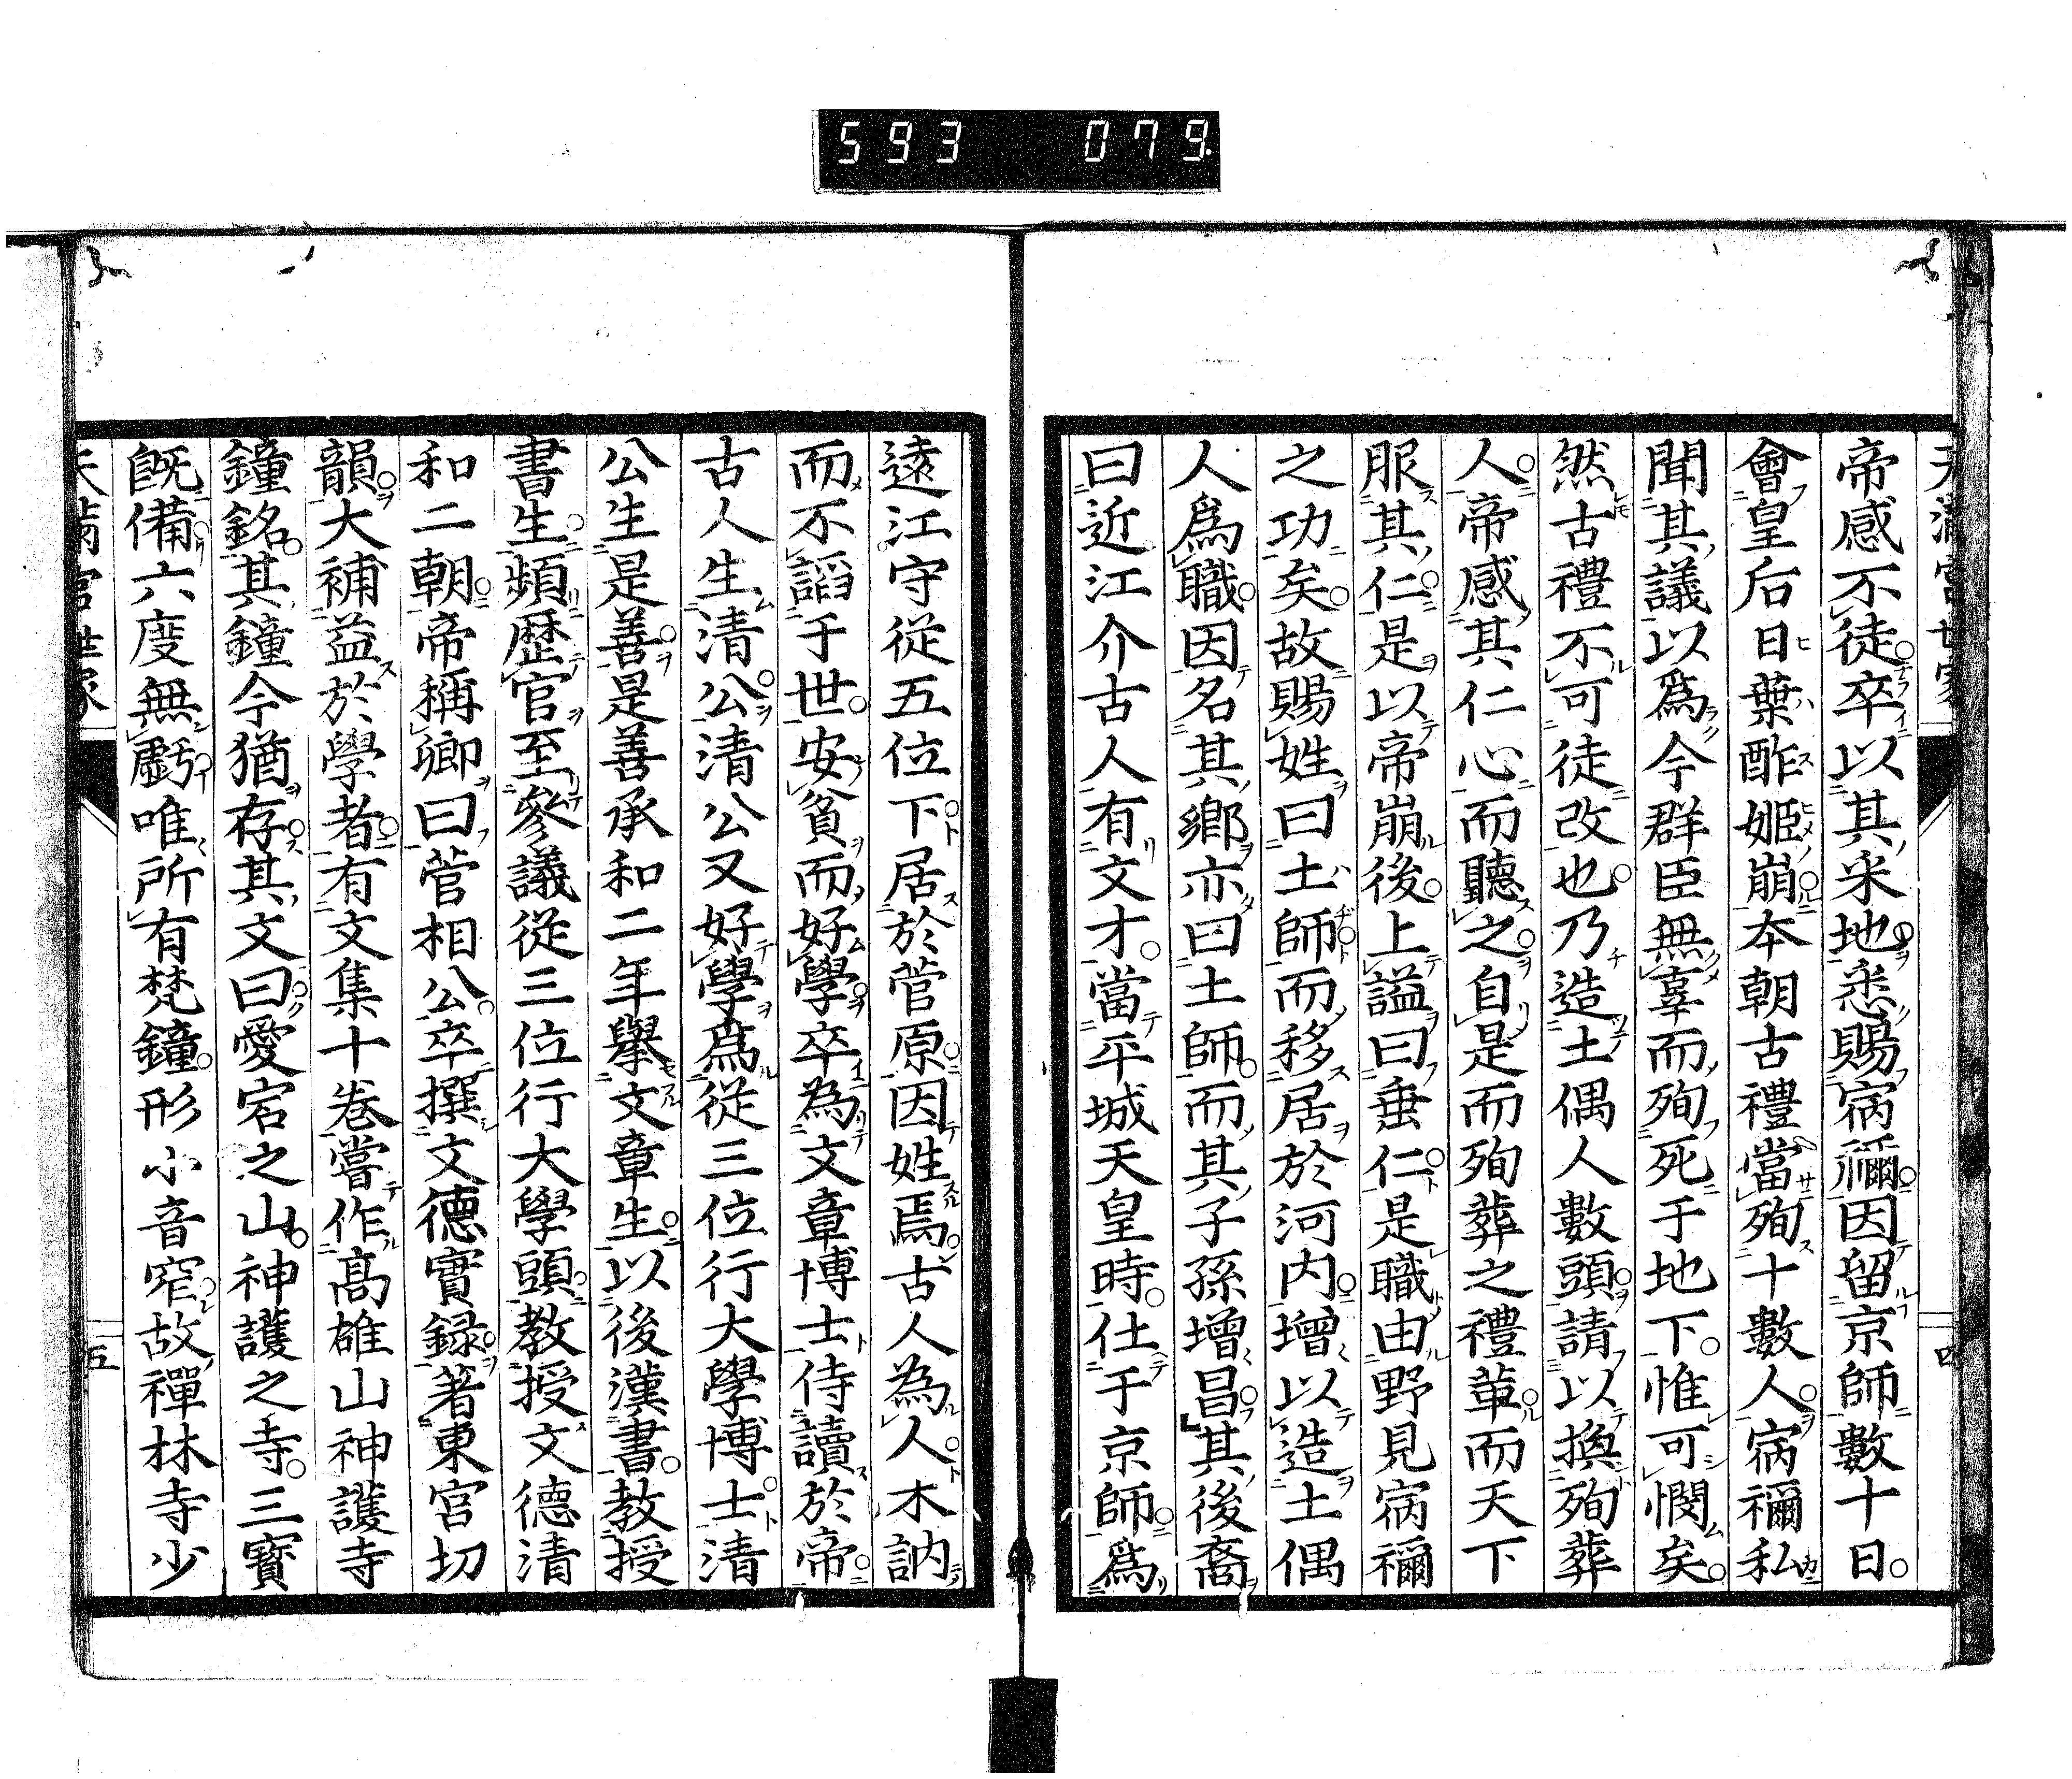 593 079
天滿宮世家 四
帝感不徒卒以其采地悉賜病禰因留京師數十日
會皇后日葉酢姬崩本朝古禮當殉十數人病禰私
聞其議以爲今群臣無辜而殉死于地下惟可憫矣
然古禮不可徒改也乃造土偶人數頭請以換殉葬
人帝感其仁心而聽之自是而殉葬之禮革而天下
服其仁是以帝崩後上謚曰垂仁是職由野見病禰
之功矣故賜姓曰土師而移居於河内增以造土偶
人爲職因名其鄉亦曰土師而其子孫增昌其後裔
曰近江介古人有文才當平城天皇時仕于京師爲
遠江守從五位下居於菅原因姓焉古人為人木訥
而不謟于世安貧而好學卒為文章博士侍讀於帝
古人生清公清公又好學爲從三位行大學博士清
公生是善是善承和二年擧文章生以後漢書教授
書生頻歷官至參議從三位行大學頭教授文德清
和二朝帝稱卿曰菅相公卒撰文德實録著東宮切
韻大補益於學者有文集十巻嘗作高雄山神護寺
鐘銘其鐘今猶存其文曰愛宕之山神護之寺三寶
既備六度無虧唯所有梵鐘形小音窄故禪林寺少
天滿宮世家 五